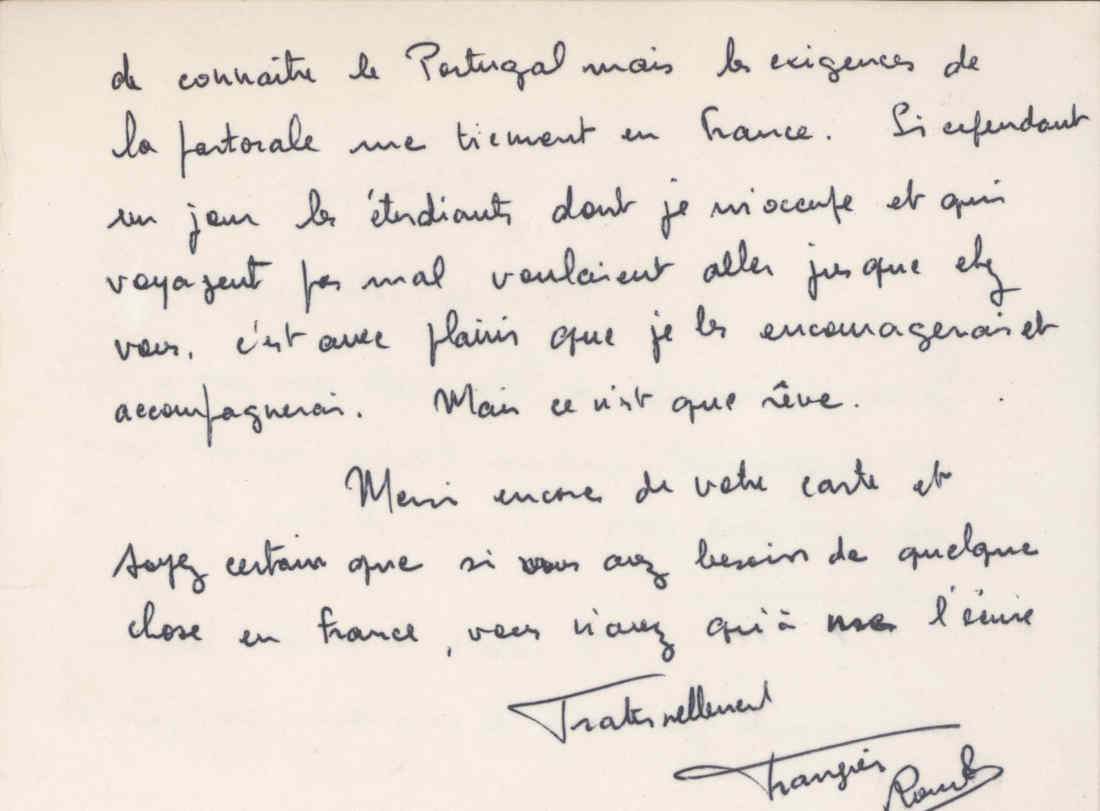 de connaître le Portugal mais les exigences de
la pastorale me tiennent en France. Si cependant
un jour les étudiants dont je m'occupe et qui
voyagent pas mal voulaient aller jusque chez
vous, c'est avec plaisir que je les encouragerais et
accompagnerai. Mais ce n'est que rêve.
Merci encore de votre carte et
soyez certain que si vous avez besoin de quelque
chose en France, vous n'avez qu'à me l'écrire
Fraternellement
François